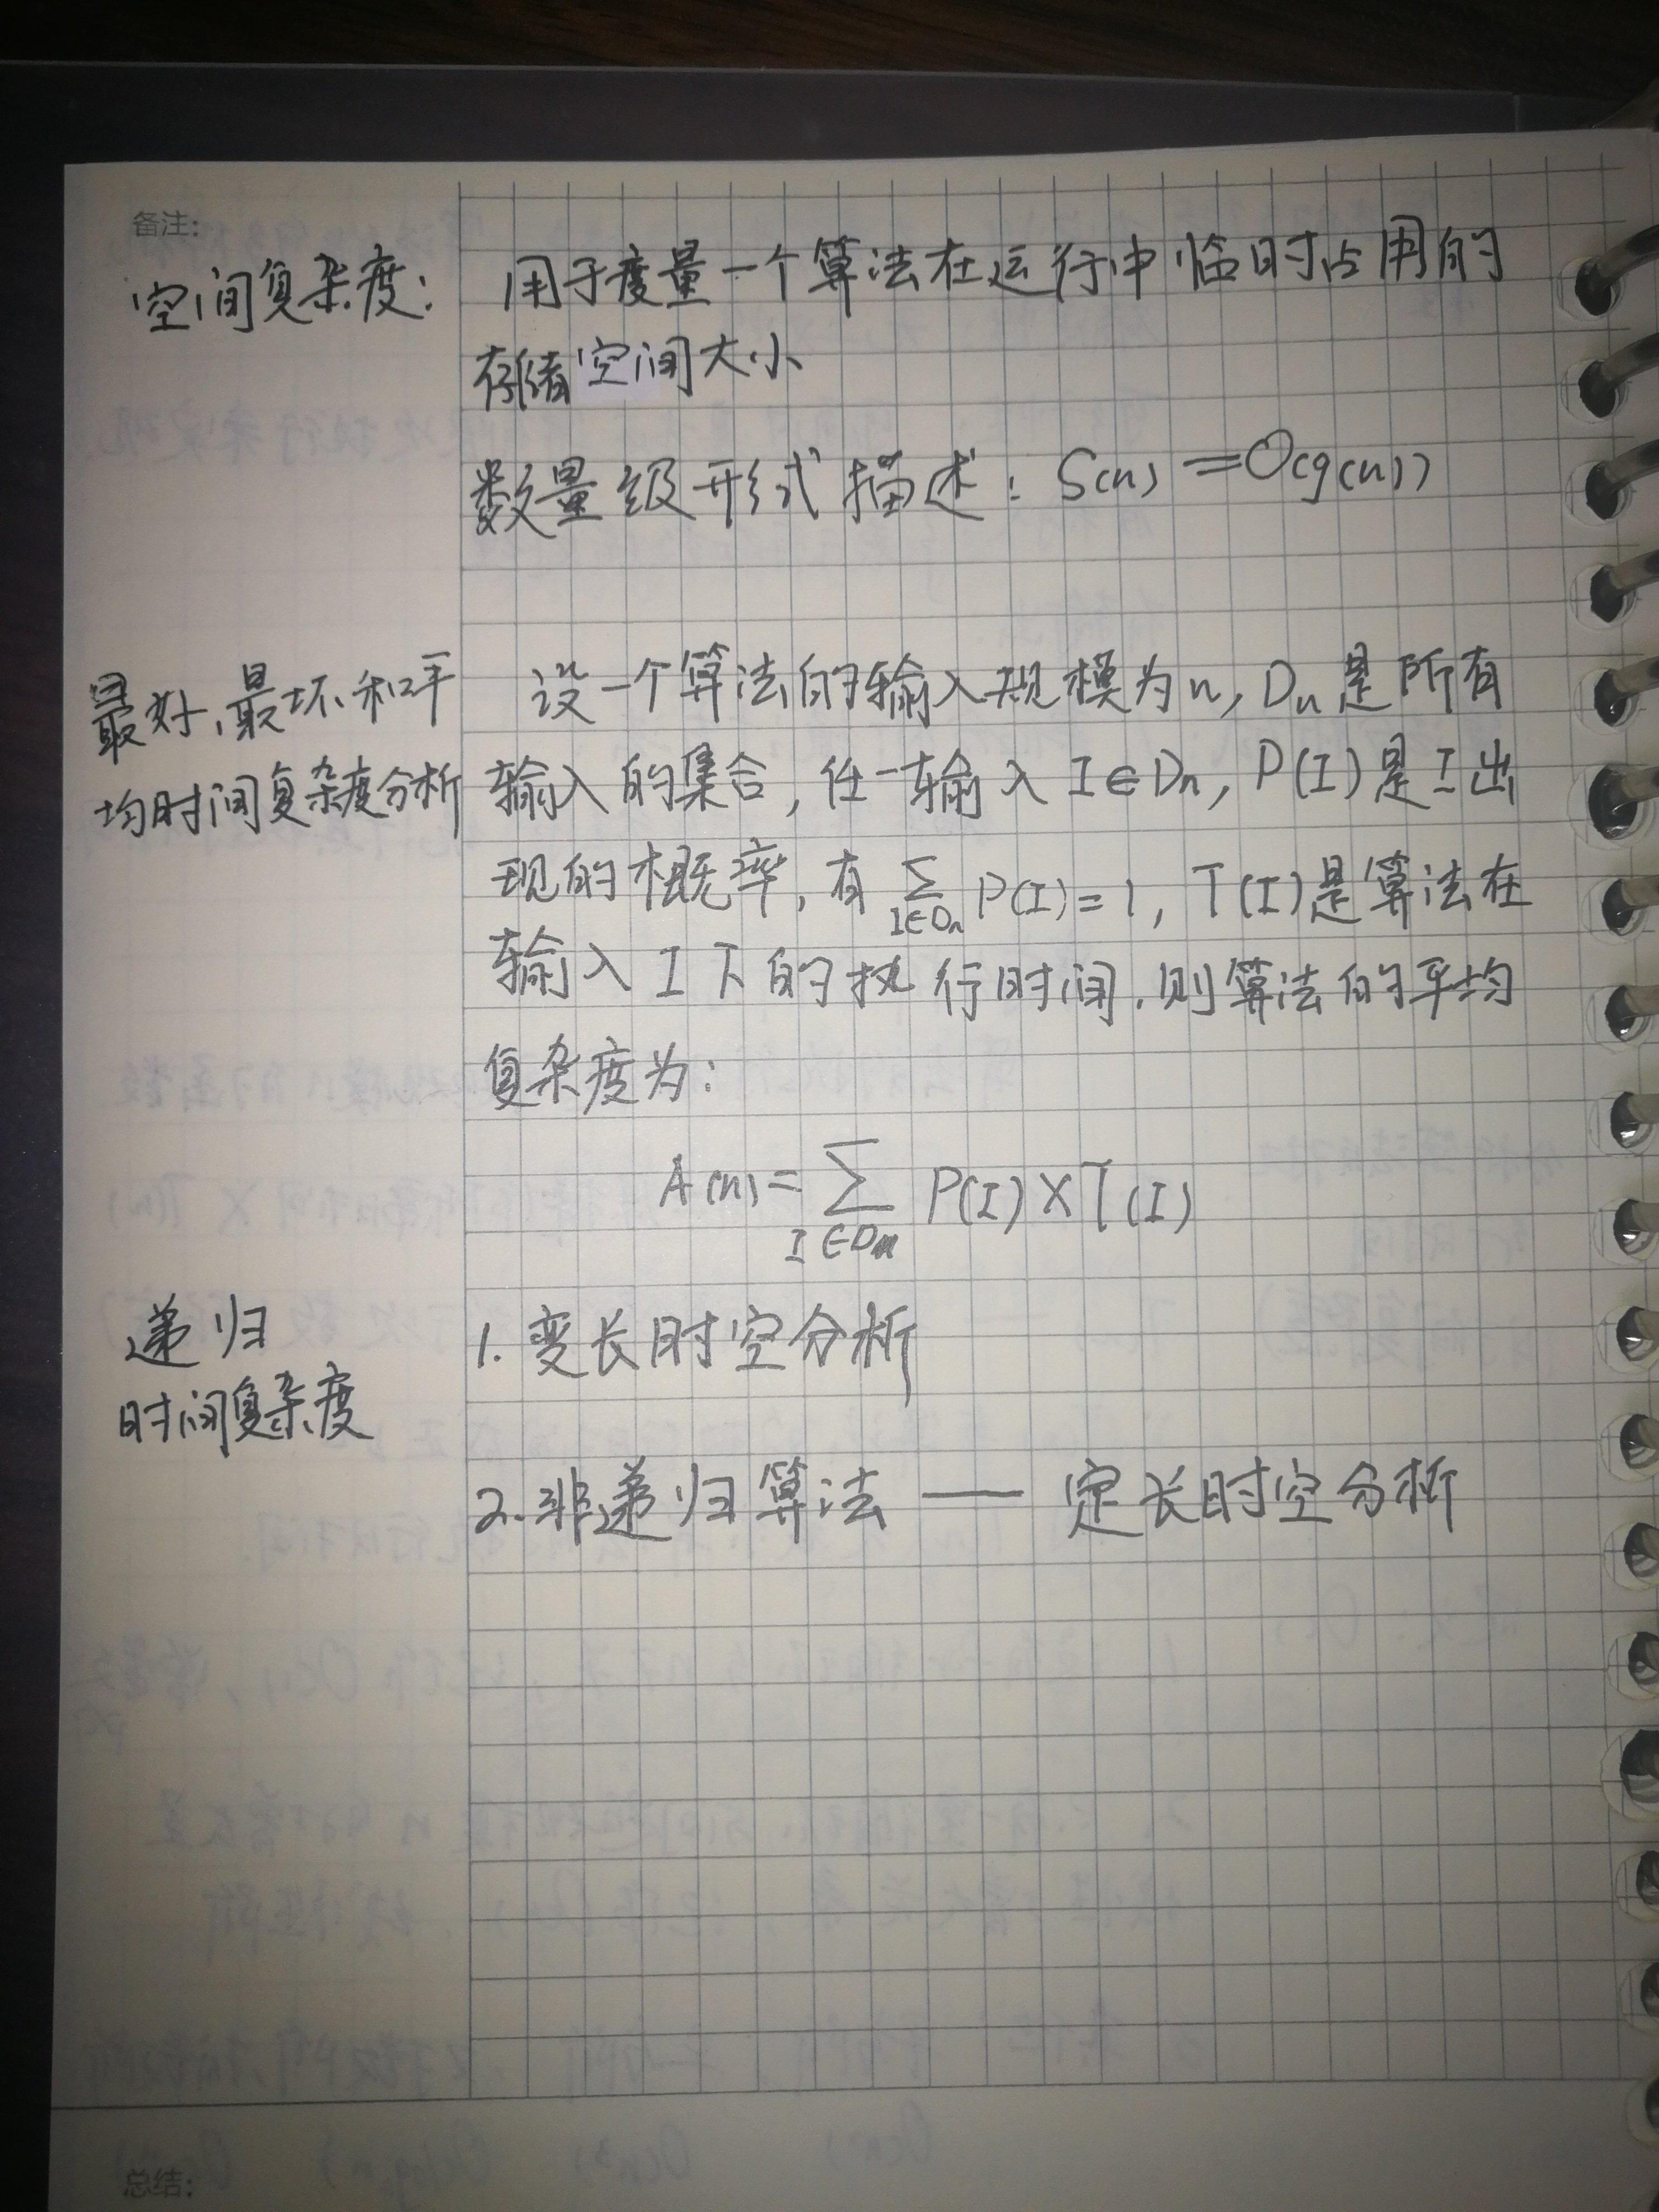 备注:
空间复杂度: 用于度量一个算法在运行中临时占用的
存储空间大小
数量级形式描述: S(n) = O(g(n))
最好、最坏和平
均时间复杂度分析
设一个算法的输入规模为n, Dn是所有
输入的集合, 任一输入 I∈Dn, P(I)是I出
现的概率, 有 ∑ I∈Dn P(I)=1, T(I)是算法在
输入I下的执行时间, 则算法的平均
复杂度为:
A(n)= ∑ I∈Dn P(I)×T(I)
递归
时间复杂度
1. 变长时空分析
2. 非递归算法 —— 定长时空分析
总结: